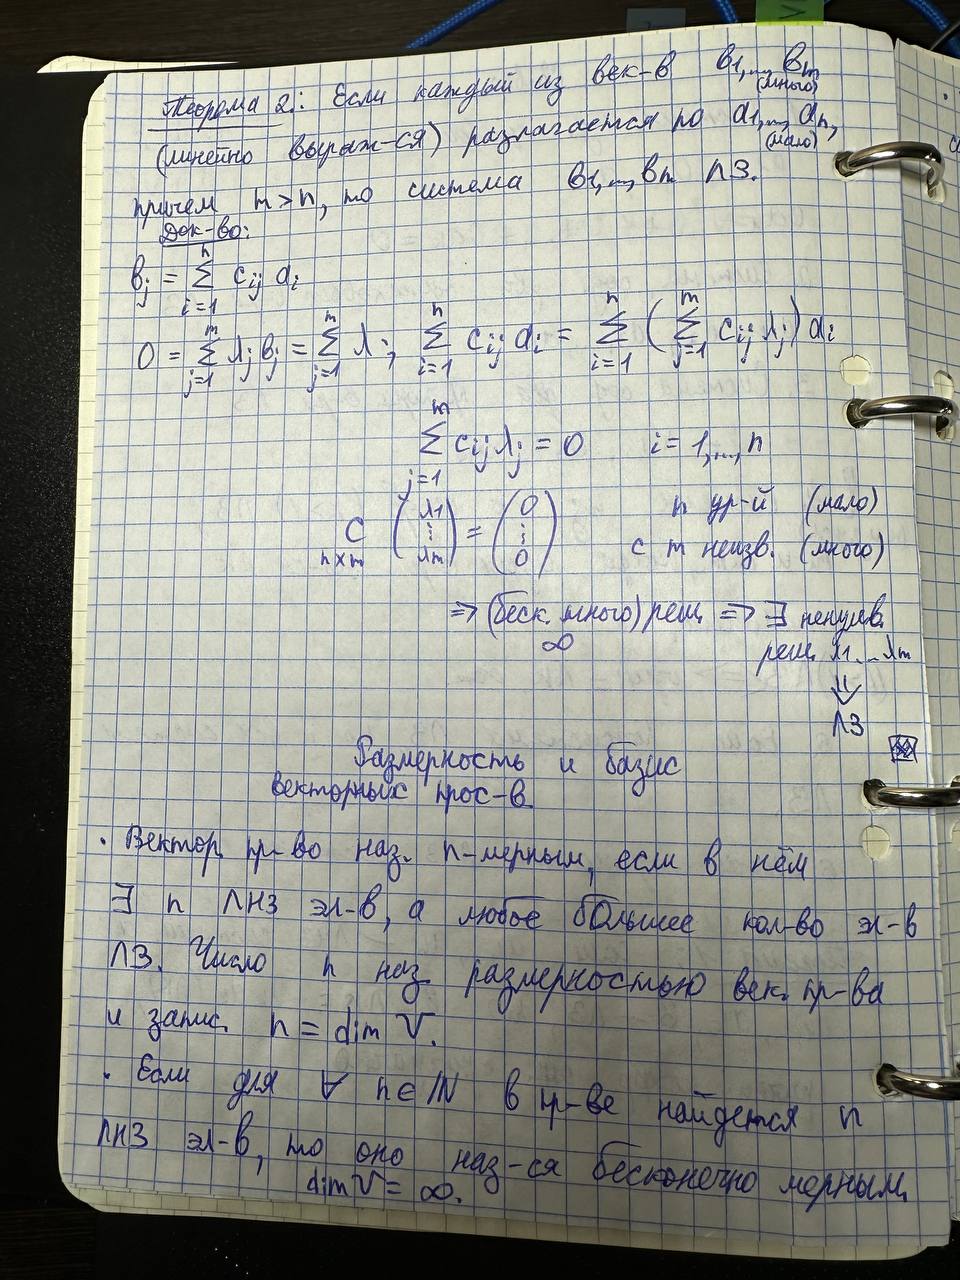 Теорема 2: Если каждый из век-в b1,...,bm (много)
(линейно выраж-ся) разлагается по a1,...,an, (мало)
причем m>n, то система b1,...,bm ЛЗ.
Док-во:
bj = ∑_{i=1}^{n} cij ai
0 = ∑_{j=1}^{m} λj bj = ∑_{j=1}^{m} λj ∑_{i=1}^{n} cij ai = ∑_{i=1}^{n} (∑_{j=1}^{m} cij λj) ai
∑_{j=1}^{m} cij λj = 0 i = 1,...,n
C_{n×m} (λ1 ⋮ λm) = (0 ⋮ 0) n ур-й (мало)
с m неизв. (много)
=> (беск. много) реш. => ∃ ненулев.
∞ реш. λ1...λm
⇓
ЛЗ
Размерность и базис
векторных прос-в.
· Вектор. пр-во наз. n-мерным, если в нём
∃ n ЛНЗ эл-в, а любое бОльшее кол-во эл-в
ЛЗ. Число n наз. размерностью век. пр-ва
и запис. n = dim V.
· Если для ∀ n ∈ ℕ в пр-ве найдется n
ЛНЗ эл-в, то оно наз-ся бесконечно мерным,
dim V = ∞.